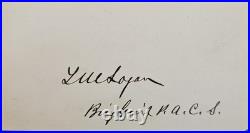 T M Logan
Brig Genl P. A. C. S.